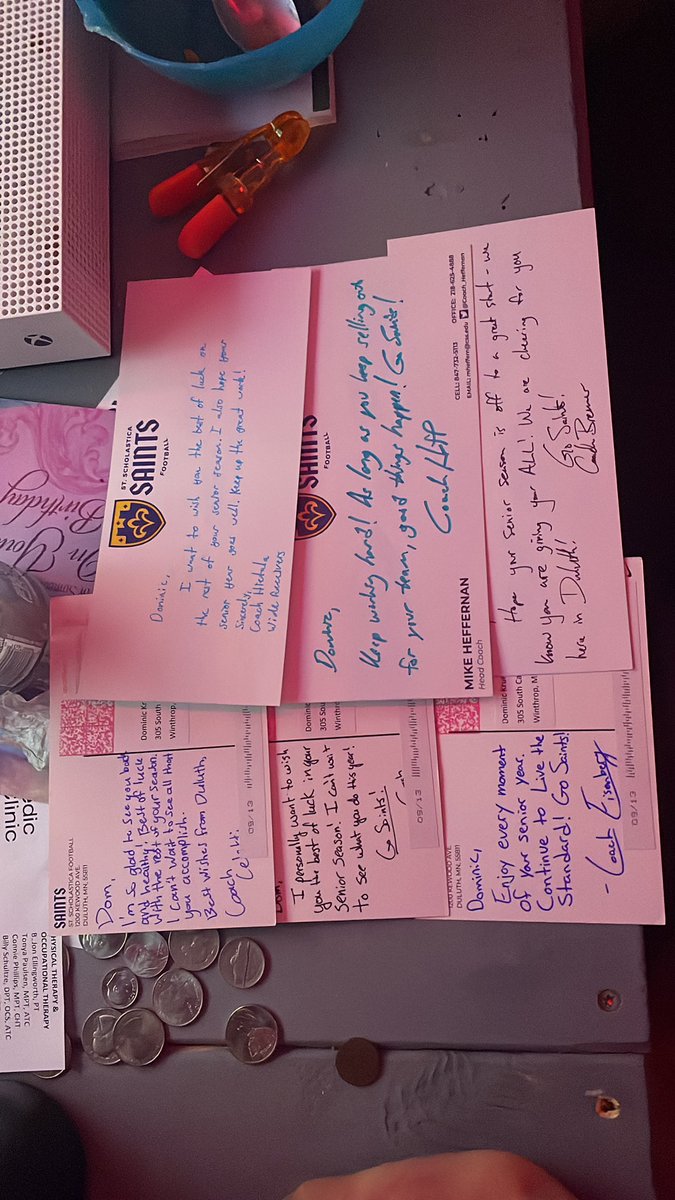 ST. SCHOLASTICA
SAINTS
FOOTBALL
Dominic,
I want to wish you the best of luck on
the rest of your senior season. I also hope your
senior year goes well. Keep up the great work!
Sincerely,
Coach
Wide Receivers
SAINTS
FOOTBALL
Keep working hard! As long as you keep selling out
for your team, good things happen! Go Saints!
Coach
MIKE HEFFERNAN
Head Coach
CELL: 847-732-5113 OFFICE: 218-625-4888
EMAIL: mheffern@css.edu @Coach_Heffernan
Hope your senior season is off to a great start - we
know you are giving your ALL! We are cheering for you
here in Duluth!
Go Saints!
Coach Bremer
SAINTS
ST. SCHOLASTICA FOOTBALL
1200 KENWOOD AVE.
DULUTH, MN, 55811
Dom,
I'm so glad to see you back
and healthy! Best of luck
with the rest of your season.
I can't wait to see all that
you accomplish.
Best Wishes from Duluth,
Coach
Dominic
305 South
Winthrop,
09/13
Dom,
I personally want to wish
you the best of luck in your
Senior Season! I can't wait
to see what you do this year!
Go Saints!
Dominic
305 South
09/13
1200 KENWOOD AVE.
DULUTH, MN, 55811
Dominic,
Enjoy every moment
of your senior year.
Continue to Live the
Standard! Go Saints!
- Coach
Dominic
305 South
Winthrop, M
09/13
Birthday
edic
linic
HYSICAL THERAPY &
OCCUPATIONAL THERAPY
B. Jon Ellingworth, PT
Tonya Paulsen, MPT, ATC
Connie Phillips, MPT, CHT
Billy Schultze, DPT, OCS, ATC